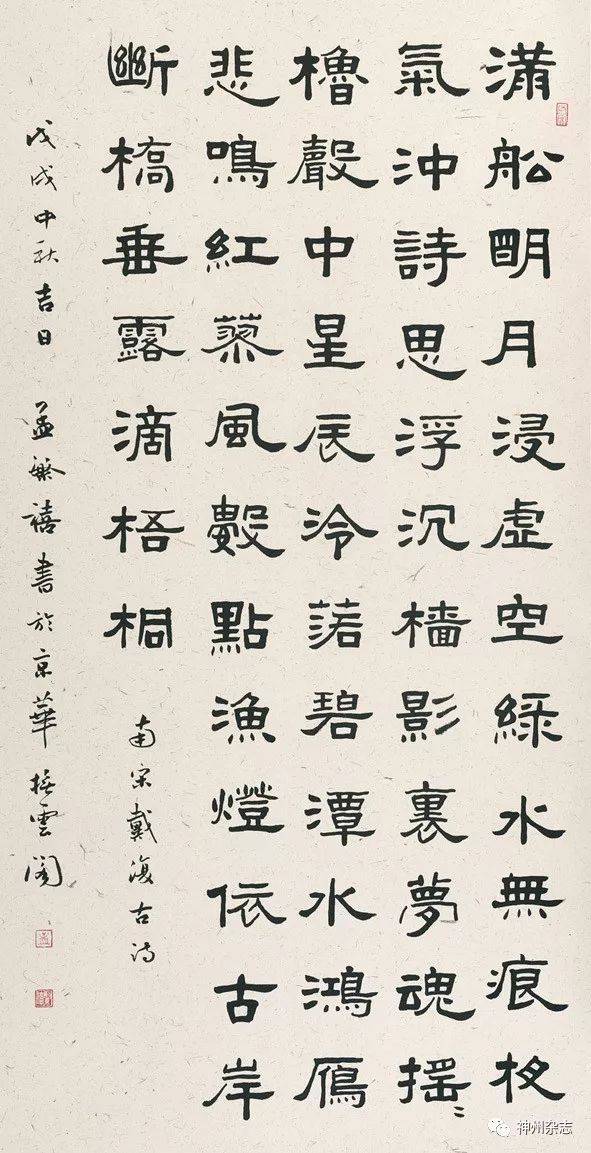 滿船明月浸虛空綠水無痕夜
氣沖詩思浮沉檣影裏夢魂搖〻
櫓聲中星辰泠落碧潭水鴻鴈
悲鳴紅蓼風數點漁燈依古岸
斷橋垂露滴梧桐
南宋戴復古詩
戊戌中秋吉日 孟繁禧書於京華雲閣
神州杂志